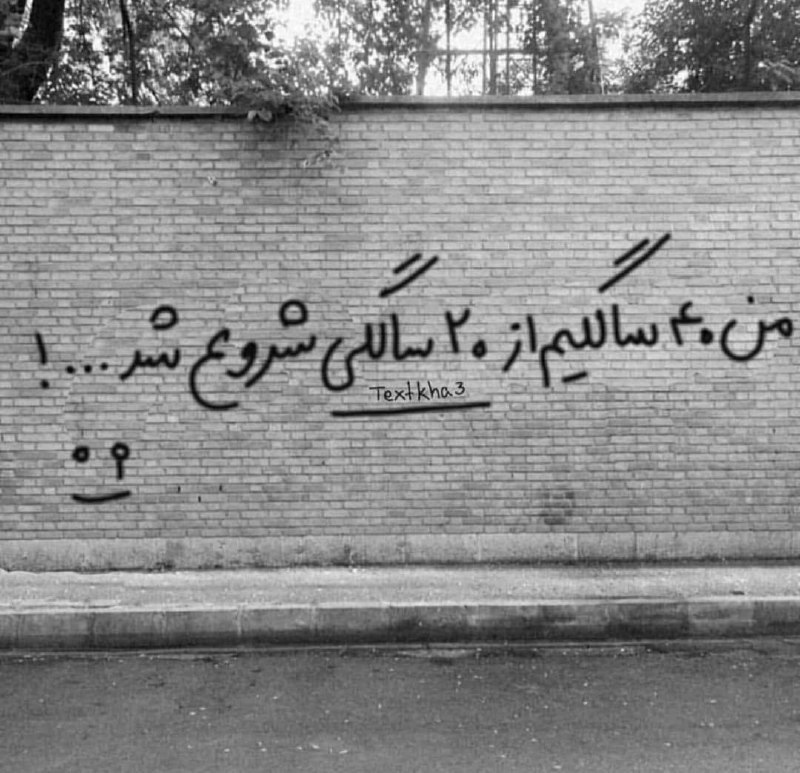 من ۴۰ سالگیم از ۲۰ سالگی شروع شد...!
Textkha3